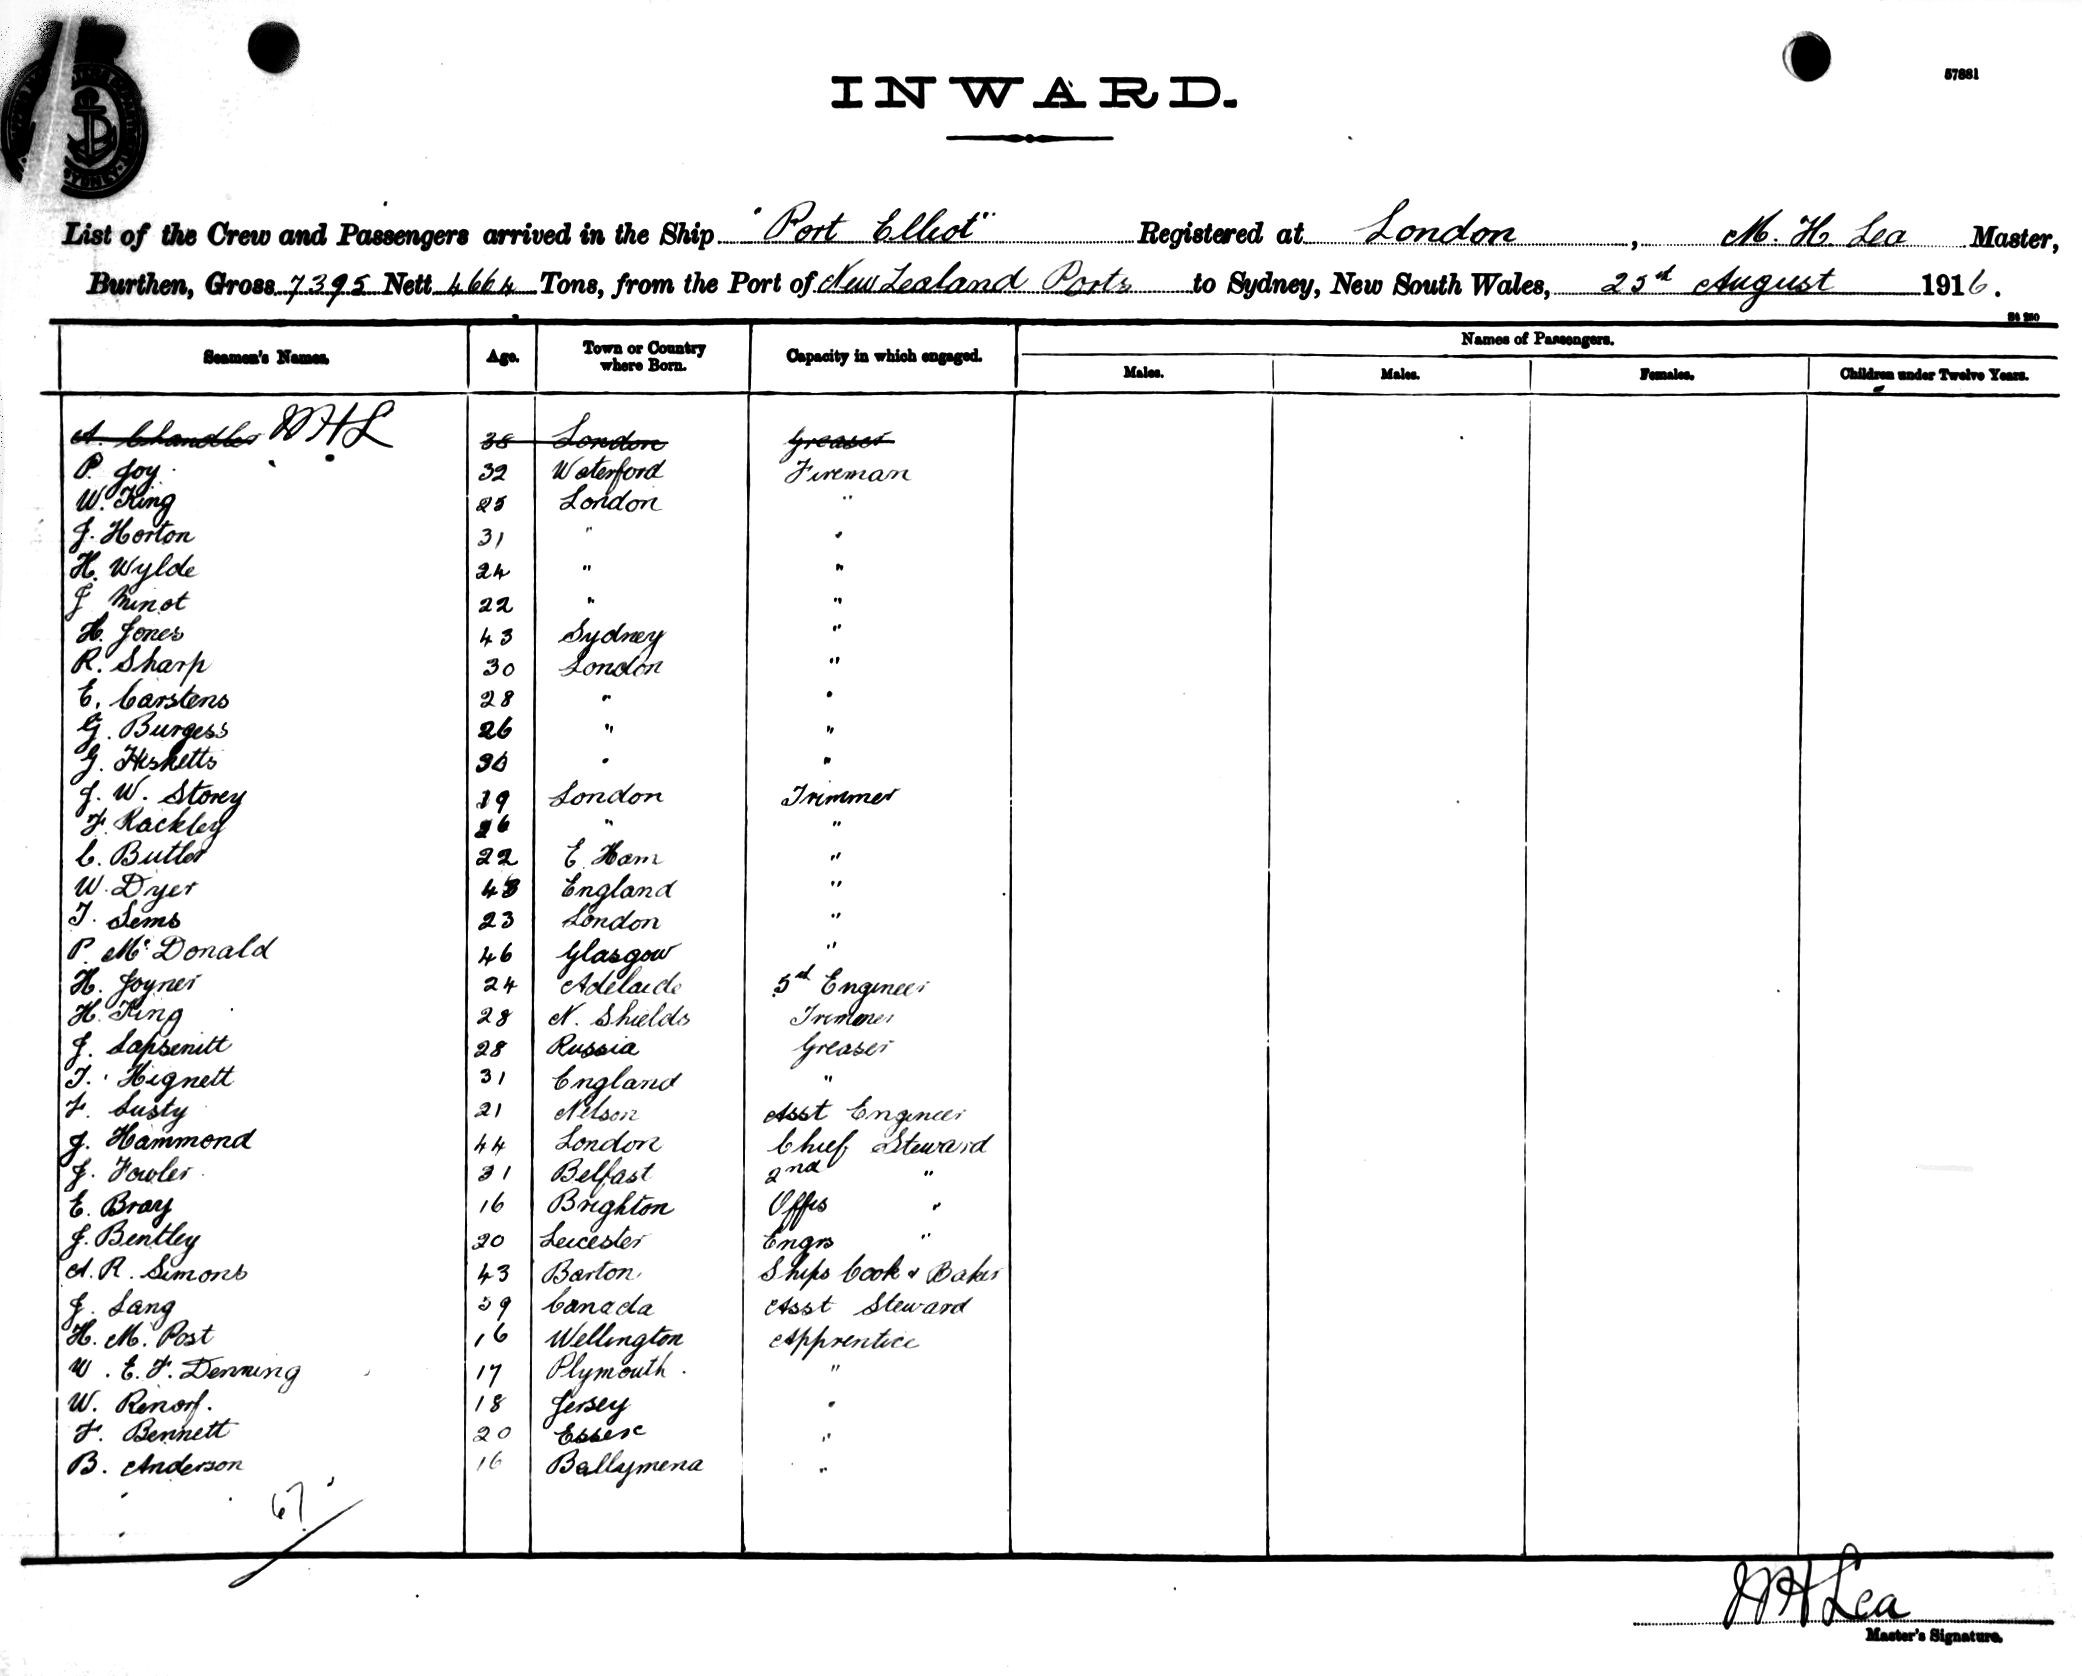 57881
INWARD.
List of the Crew and Passengers arrived in the Ship "Port Elliot" Registered at London, M. H. Lea Master,
Burthen, Gross 7395 Nett 4664 Tons, from the Port of New Zealand Ports to Sydney, New South Wales, 25th August 1916.
Names of Passengers.
Seamen's Names. Age. Town or Country where Born. Capacity in which engaged. Males. Males. Females. Children under Twelve Years.
A. Chandler MHL 38 London Greaser
P. Joy 32 Waterford Fireman
W. King 25 London "
J. Horton 31 " "
H. Wylde 24 " "
J Minot 22 " "
H. Jones 43 Sydney "
R. Sharp 30 London "
E. Carstens 28 " "
G. Burgess 26 " "
G. Hisketts " "
J. W. Storey 19 London Trimmer
F. Rackley 26 " "
C. Butler 22 E. Ham "
W. Dyer 43 England "
T. Lems 23 London "
P. McDonald 46 Glasgow "
H. Joyner 24 Adelaide 5th Engineer
H. King 28 N. Shields Trimmer
J. Lapsenitt 28 Russia Greaser
T. Hignett 31 England "
F. Lusty 21 Nelson Asst Engineer
J. Hammond 44 London Chief Steward
J. Fowler 31 Belfast 2nd "
E. Bray 16 Brighton Offrs "
J. Bentley 20 Leicester Engrs "
A. R. Simons 43 Barton Ships Cook & Baker
J. Lang 59 Canada Asst Steward
H. M. Post 16 Wellington Apprentice
W. E. F. Denning 17 Plymouth. "
W. Renorf. 18 Jersey "
F. Bennett 20 Essex "
B. Anderson 16 Ballymena "
67
MH Lea
Master's Signature.